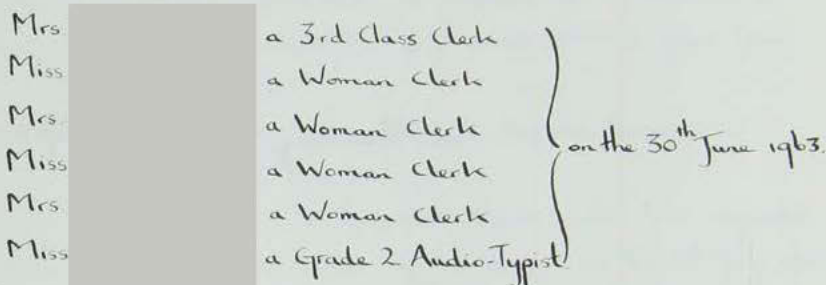 Mrs a 3rd Class Clerk
Miss a Woman Clerk
Mrs. a Woman Clerk
Miss a Woman Clerk
Mrs a Woman Clerk
Miss a Grade 2 Audio-Typist
on the 30th June 1963.